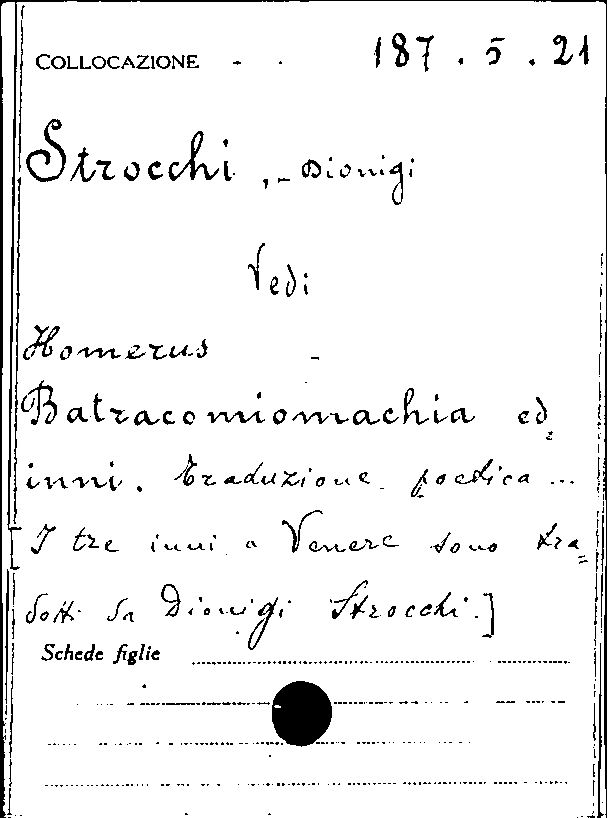 COLLOCAZIONE 187.5.21
Strocchi, - Dionigi
Vedi
Homerus
Batracomiomachia ed
inni. Traduzione poetica...
I tre inni a Venere sono tra=
dotti da Dionigi Strocchi.]
Schede figlie